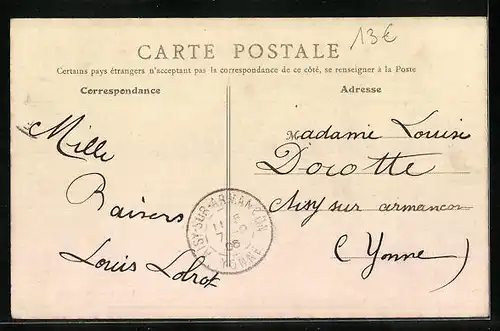 13€
CARTE POSTALE
Certains pays étrangers n'acceptant pas la correspondance de ce côté, se renseigner à la Poste
Correspondance
Adresse
Mille
Baisers
Louis
Madame Louise
Dorotte
Aisy sur armancon
(Yonne)
AISY-SUR-ARMANÇON
YONNE